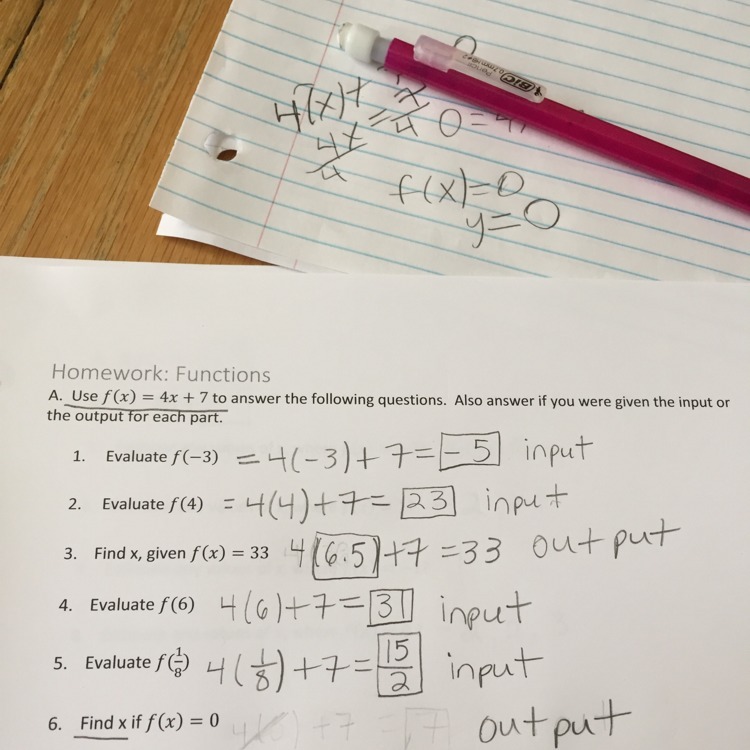 BIC
4(x)+
= x/4
0 = 4
4x/4
f(x)=0
y=0
Homework: Functions
A. Use f(x) = 4x + 7 to answer the following questions. Also answer if you were given the input or
the output for each part.
1. Evaluate f(−3) = 4(-3)+7= -5 input
2. Evaluate f(4) = 4(4)+7= 23 input
3. Find x, given f(x) = 33 4(6.5)+7=33 output
4. Evaluate f(6) 4(6)+7= 31 input
5. Evaluate f(1/8) 4(1/8)+7= 15/2 input
6. Find x if f(x) = 0 output